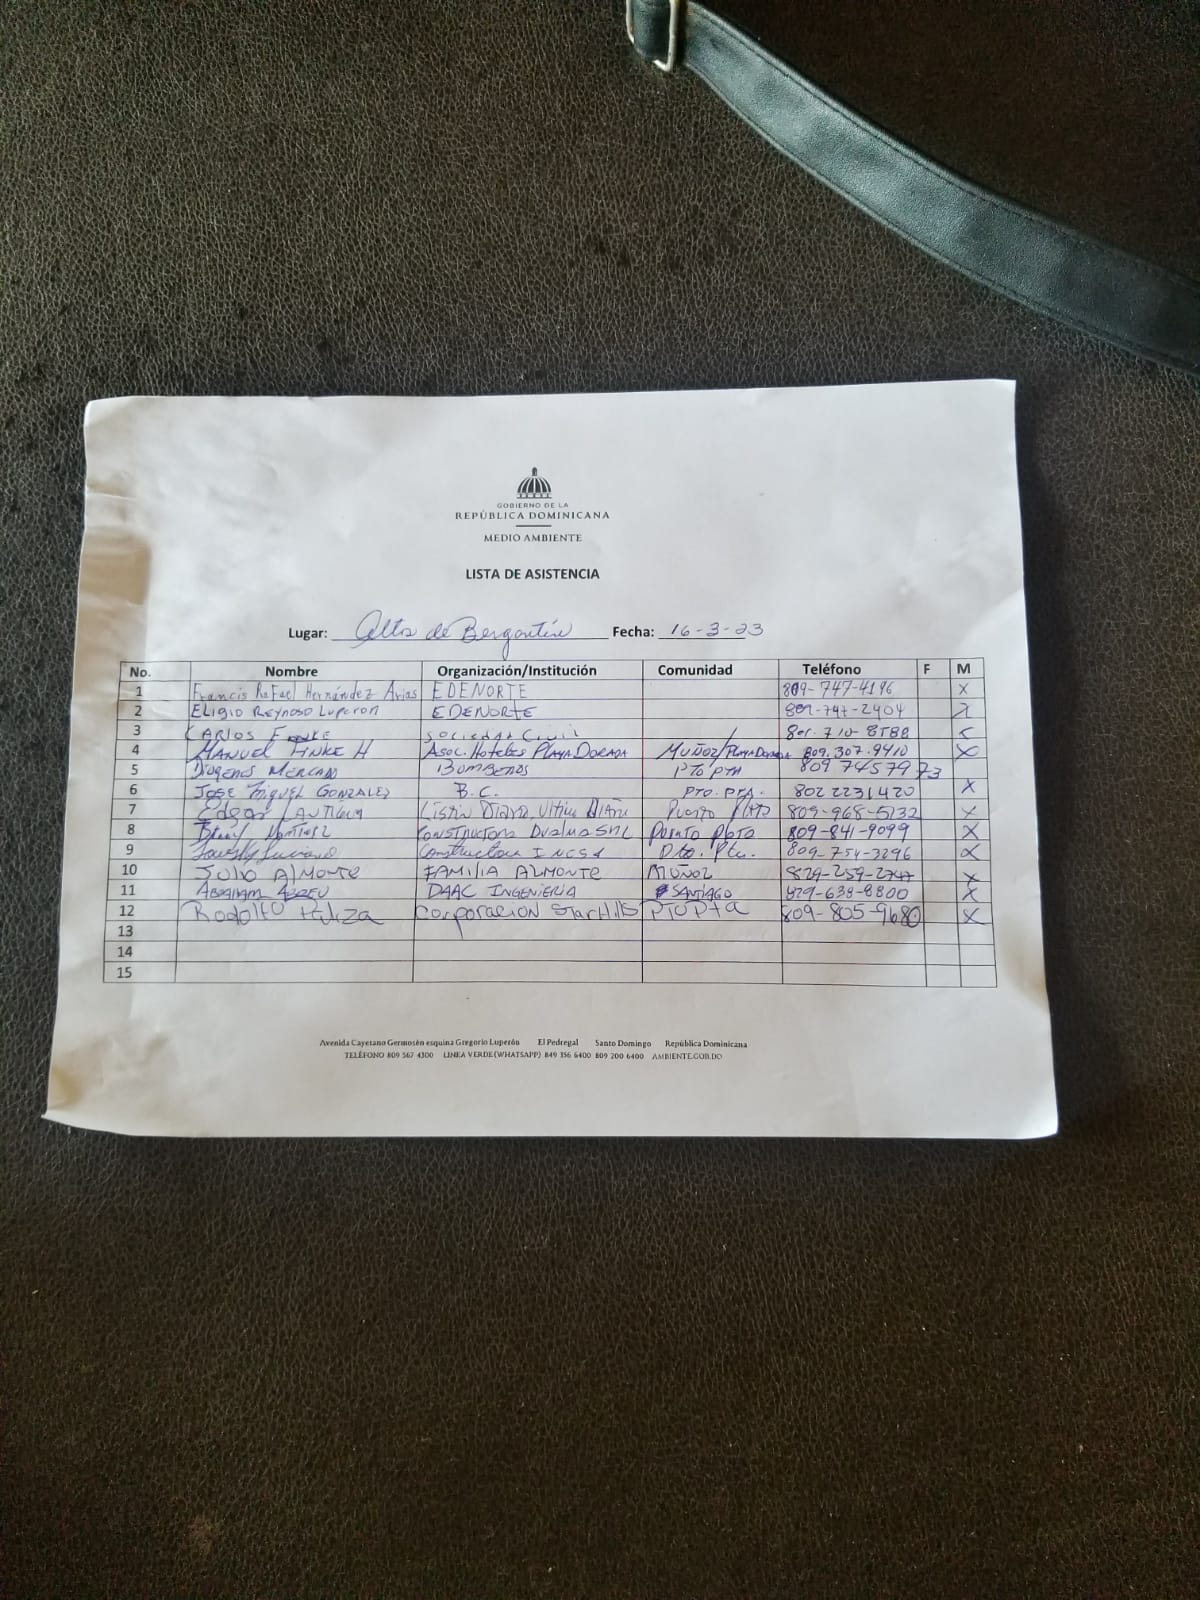 GOBIERNO DE LA
REPÚBLICA DOMINICANA
MEDIO AMBIENTE
LISTA DE ASISTENCIA
Lugar: Altos de Bergantín Fecha: 16-3-23
No. Nombre Organización/Institución Comunidad Teléfono F M
1 Francis Rafael Hernández Arias EDENORTE 809-747-4196 X
2 Eligio Reynoso Luperon EDENORTE 809-747-2904 X
3 CARLOS FINKE Sociedad Civil 801-710-8788
4 MANUEL FINKE H Asoc. Hoteles PLAYA DORADA MUÑOZ/PLAYA DORADA 809.307.9410 X
5 Diogenes Mercado Bomberos PTO PTA 809 7457973
6 JOSE Miguel GONZALEZ B.C. PTO. PTA. 802 2231420 X
7 Edgar LANTIGUA Listin Diario Puerto Plata 809-968-5132 X
8 Martinez Constructora SRL Puerto Plata 809-841-9099 X
9 Constructora INCSA Pto. Pta. 809-754-3296 X
10 JULIO ALMONTE FAMILIA ALMONTE MUÑOZ 829-259-2747 X
11 ABRAHAM ABREU DAAC INGENIERIA SANTIAGO 829-638-8800 X
12 Rodolfo Corporacion StarHills PTO PTA 809-805-9680 X
13
14
15
Avenida Cayetano Germosén esquina Gregorio Luperón El Pedregal Santo Domingo República Dominicana
TELÉFONO 809 567 4300 LINEA VERDE(WHATSAPP) 849 356 6400 809 200 6400 AMBIENTE.GOB.DO